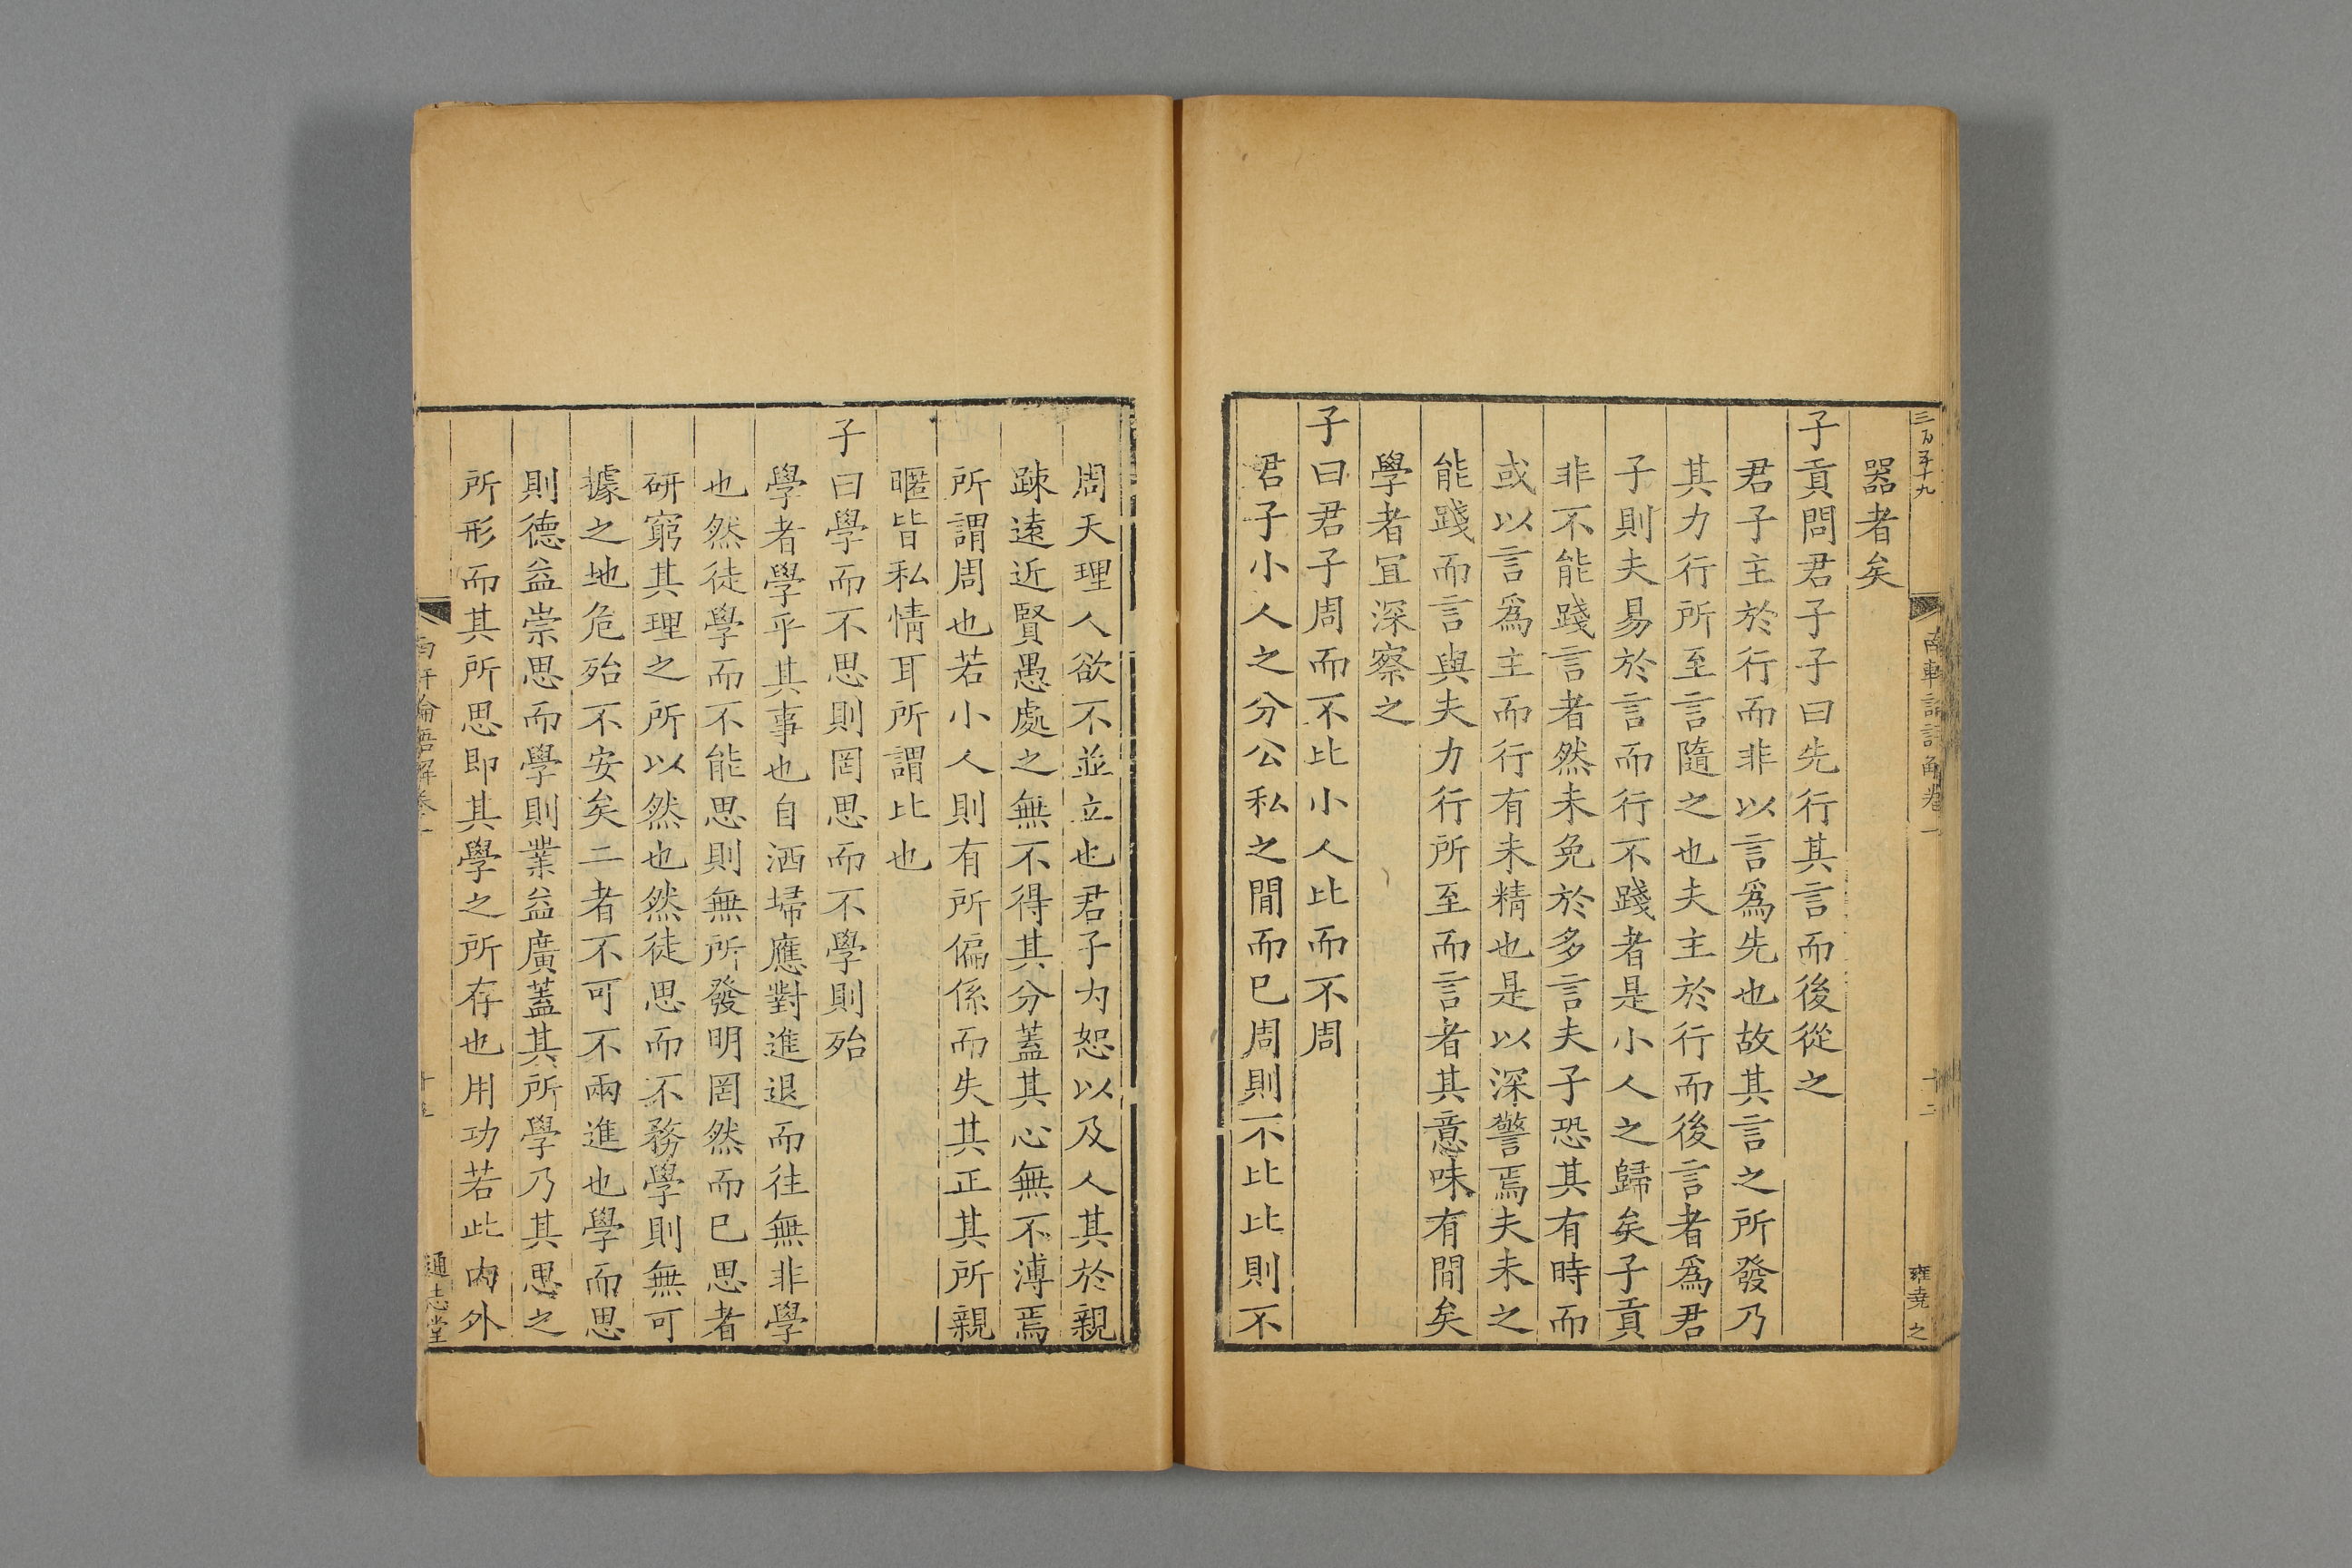 三百五十九
南軒論語解卷一
十二
雍堯之
器者矣
子貢問君子子曰先行其言而後從之
君子主於行而非以言爲先也故其言之所發乃
其力行所至言隨之也夫主於行而後言者爲君
子則夫易於言而行不踐者是小人之歸矣子貢
非不能踐言者然未免於多言夫子恐其有時而
或以言爲主而行有未精也是以深警焉夫未之
能踐而言與夫力行所至而言者其意味有間矣
學者宜深察之
子曰君子周而不比小人比而不周
君子小人之分公私之間而已周則不比比則不
周天理人欲不並立也君子內恕以及人其於親
踈遠近賢愚處之無不得其分蓋其心無不溥焉
所謂周也若小人則有所偏係而失其正其所親
暱皆私情耳所謂比也
子曰學而不思則罔思而不學則殆
學者學乎其事也自洒埽應對進退而往無非學
也然徒學而不能思則無所發明罔然而已思者
研窮其理之所以然也然徒思而不務學則無可
據之地危殆不安矣二者不可不兩進也學而思
則德益崇思而學則業益廣蓋其所學乃其思之
所形而其所思即其學之所存也用功若此內外
南軒論語解卷一
通志堂